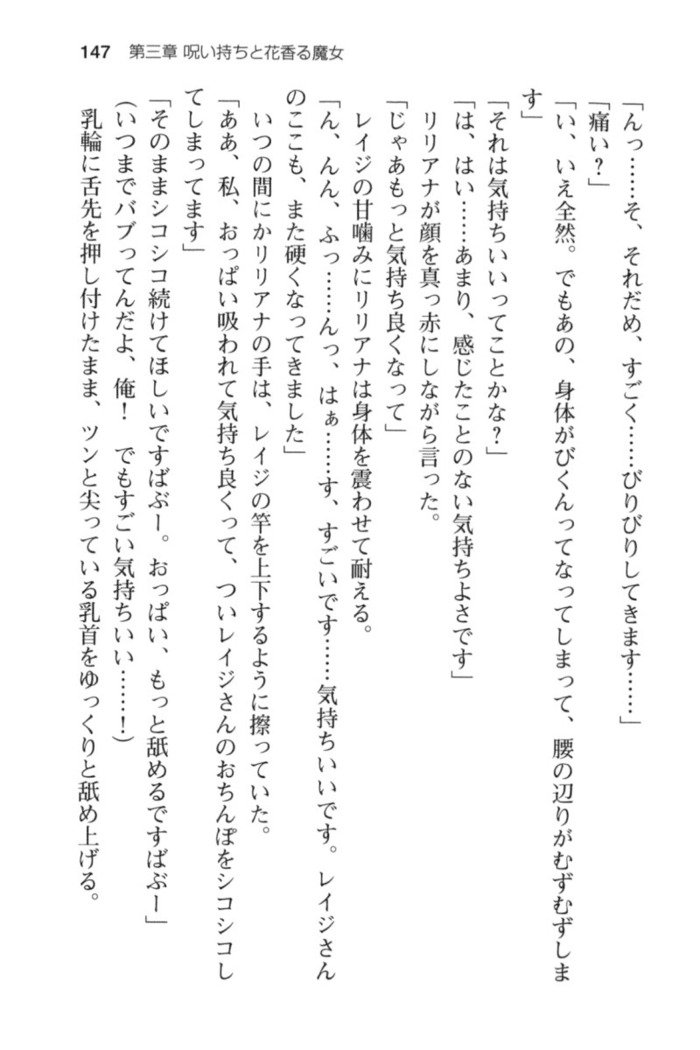 147　第三章 呪い持ちと花香る魔女
「んっ……そ、それだめ、すごく……びりびりしてきます……」
「痛い？」
「い、いえ全然。でもあの、身体がびくんってなってしまって、腰の辺りがむずむずしま
す」
「それは気持ちいいってことかな？」
「は、はい……あまり、感じたことのない気持ちよさです」
リリアナが顔を真っ赤にしながら言った。
「じゃあもっと気持ち良くなって」
レイジの甘噛みにリリアナは身体を震わせて耐える。
「ん、んん、ふっ……んっ、はぁ……す、すごいです……気持ちいいです。レイジさん
のここも、また硬くなってきました」
いつの間にかリリアナの手は、レイジの竿を上下するように擦っていた。
「ああ、私、おっぱい吸われて気持ち良くって、ついレイジさんのおちんぽをシコシコし
てしまってます」
「そのままシコシコ続けてほしいですばぶー。おっぱい、もっと舐めるですばぶー」
（いつまでバブってんだよ、俺！　でもすごい気持ちいい……！）
乳輪に舌先を押し付けたまま、ツンと尖っている乳首をゆっくりと舐め上げる。